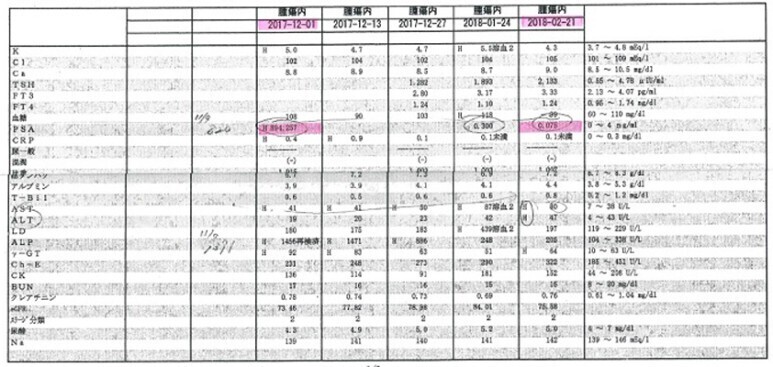 腫瘍内 腫瘍内 腫瘍内 腫瘍内 腫瘍内
2017-12-01 2017-12-13 2017-12-27 2018-01-24 2018-02-21
K H 5.0 4.7 4.7 H 5.5溶血2 4.3 3.7 ~ 4.8 mEq/l
Cl 102 104 102 104 102 101 ~ 109 mEq/l
Ca 8.8 8.9 8.5 8.7 9.0 8.5 ~ 10.5 mg/dl
TSH 1.893 2.133
FT3 2.80 3.17 3.33 2.13 ~ 4.07 pg/ml
FT4 1.24 1.10 1.24 0.95 ~ 1.74 ng/dl
血糖 108 90 103 H 60 ~ 110 mg/dl
PSA H 0.300 0.078 0 ~ 4 ng/ml
CRP H 0.4 H 0.9 0.1 0.1未満 0.1未満 0 ~ 0.3 mg/dl
尿一般
(-) (-) (-) (-)
アルブミン 3.9 3.9 4.1 4.1 4.4 3.8 ~ 5.3 g/dl
T-Bil 0.6 0.5 0.6 0.6 0.8 0.2 ~ 1.2 mg/dl
AST H 41 H 41 H 50 H 溶血2 H 7 ~ 38 U/L
ALT 19 20 23 42 H 47 4 ~ 43 U/L
LD 180 175 183 H 439溶血2 197 119 ~ 229 U/L
ALP H 1456再検済 H 1471 H 886 248 203 104 ~ 338 U/L
γ-GT H 92 H 83 H 63 51 H 64 10 ~ 63 U/L
Ch-E 231 248 273 290 322 185 ~ 431 U/L
CK 136 114 91 181 152
BUN 17 16 16 15 16 8 ~ 20 mg/dl
クレアチニン 0.78 0.74 0.73 0.69 0.76 0.61 ~ 1.04 mg/dl
eGFR 73.46 77.82 78.98 84.01 75.58
ステージ分類 2 2 2 2 2
尿酸 4.3 4.9 5.0 5.2 5.0 4 ~ 7 mg/dl
Na 139 141 140 141 142 139 ~ 146 mEq/l